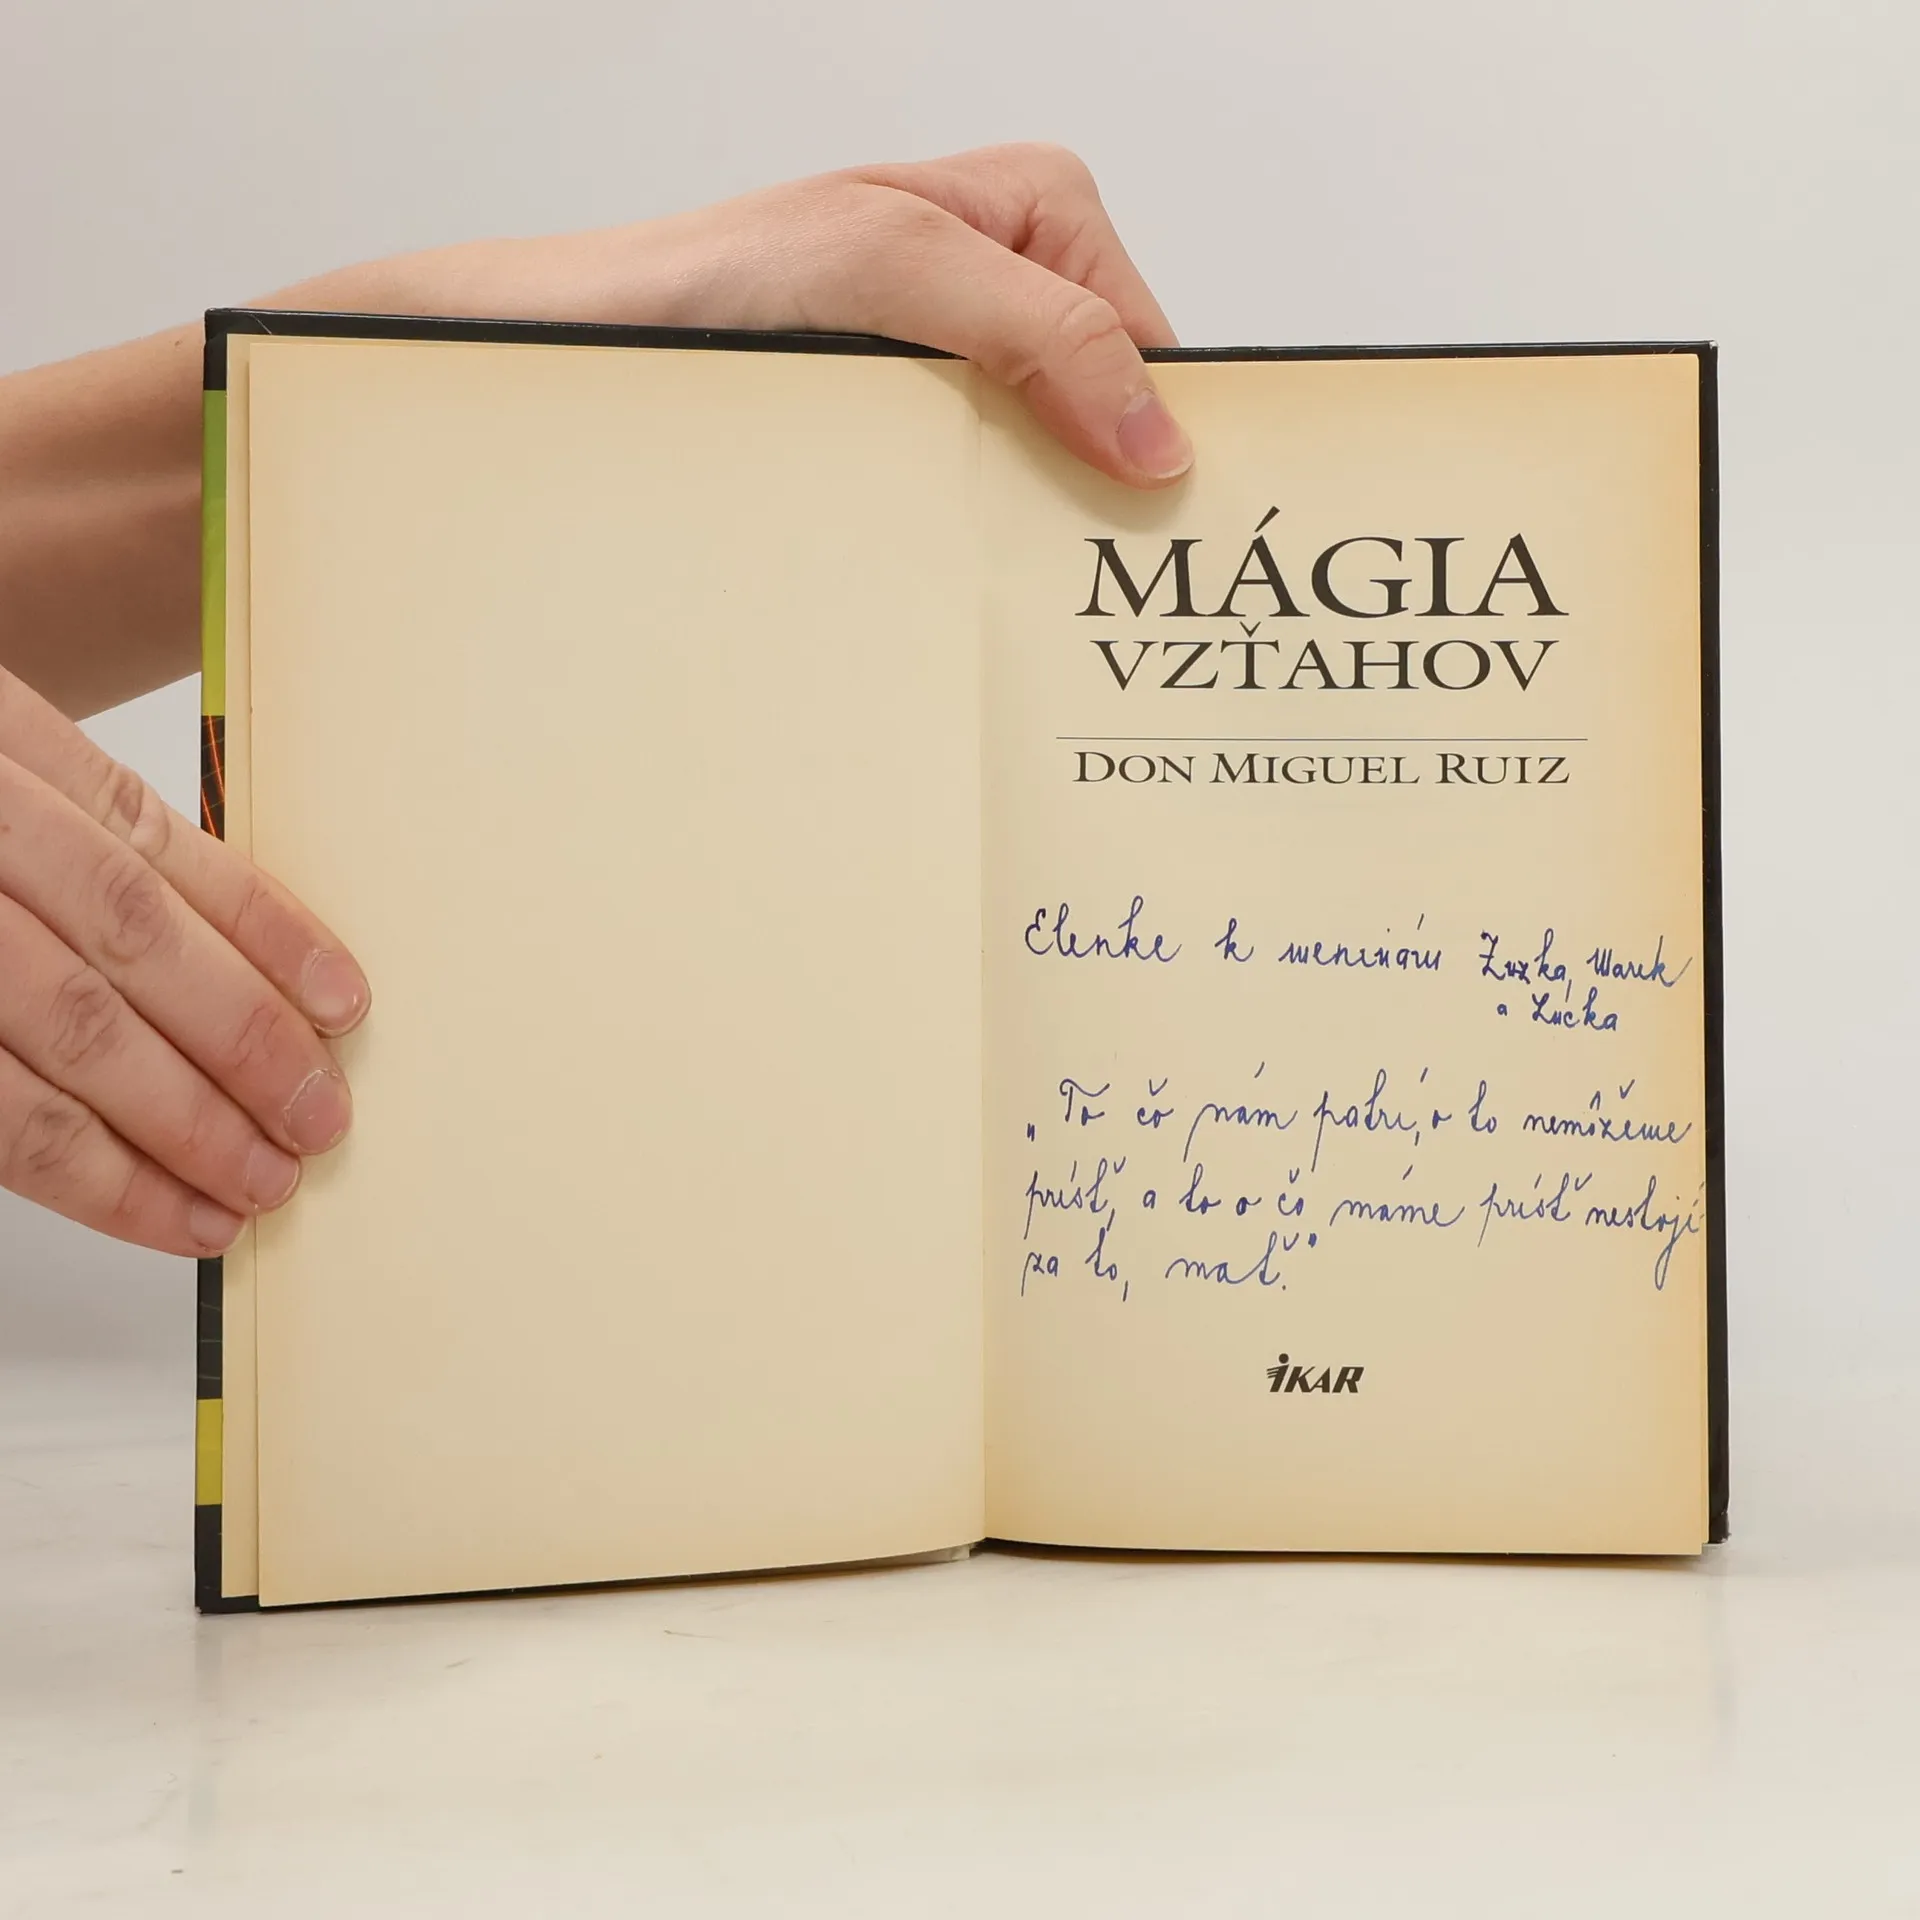 MÁGIA
VZŤAHOV
DON MIGUEL RUIZ
Elenke k meninám Zuzka, Marek
a Lucka
„To čo nám patrí, o to nemôžeme
prísť, a to o čo máme prísť nestojí
za to, mať."
IKAR